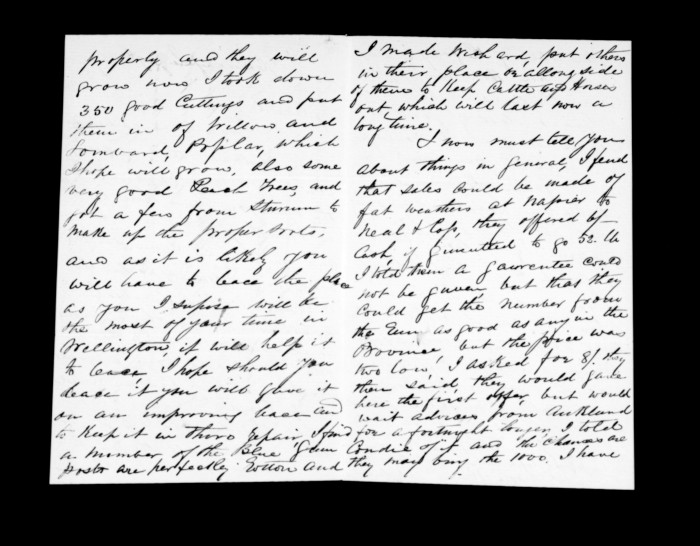 properly and they will
grow now I took down
350 good Cuttings and put
them in of Willow and
Lombard, Poplar, which
I hope will grow, also some
very good Peach Trees, and
got a few from Sturum to
make up the proper sorts,
and as it is likely you
will have to leace the place
as you I supise will be
the most of your time in
Wellington it will help it
to leace I hope should you
leace it you will give it
on an improving lease and
to keep it in thoro repair, I find
a number of the Blue Gum
posts are perfectley Rotton and
I made Wish ard, put others
in their place or allong side
of them to Keep Cattle and Horses
out which will last now a
long time.
I now must tell you
about things in general, I fend
that sales could be made of
fat weathers at Napier to
Neal & Cop, they offered 6/-
Cash, if to go 52. lb
I told them a gawrentee could
not be given but that they
could get the number from
the Run as good as any in the
Province but the price was
two low, I asked for 8/. they
then said they would gave
here the first offer but would
wait advices from Auckland
for a fortnight longer, I told
Condie of it and the chances are
they may buy the 1000. I have